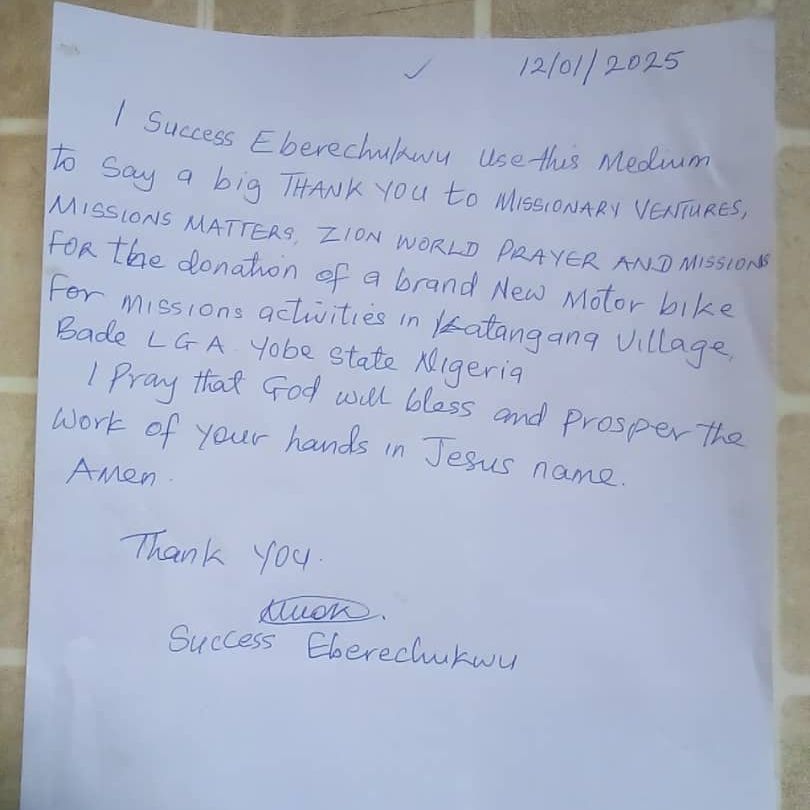 12/01/2025
I Success Eberechukwu Use this Medium
to say a big THANK YOU to MISSIONARY VENTURES,
MISSIONS MATTERS, ZION WORLD PRAYER AND MISSIONS
FOR the donation of a brand New Motor bike
For missions activities in Katangana Village,
Bade LGA. Yobe State Nigeria
I Pray that God will bless and prosper the
Work of your hands in Jesus name.
Amen.
Thank you.
Success Eberechukwu